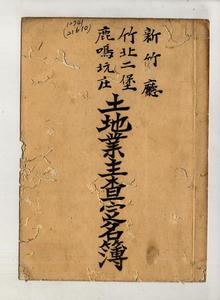 新竹廳
竹北二堡
鹿鳴坑庄
土地業主查定名簿